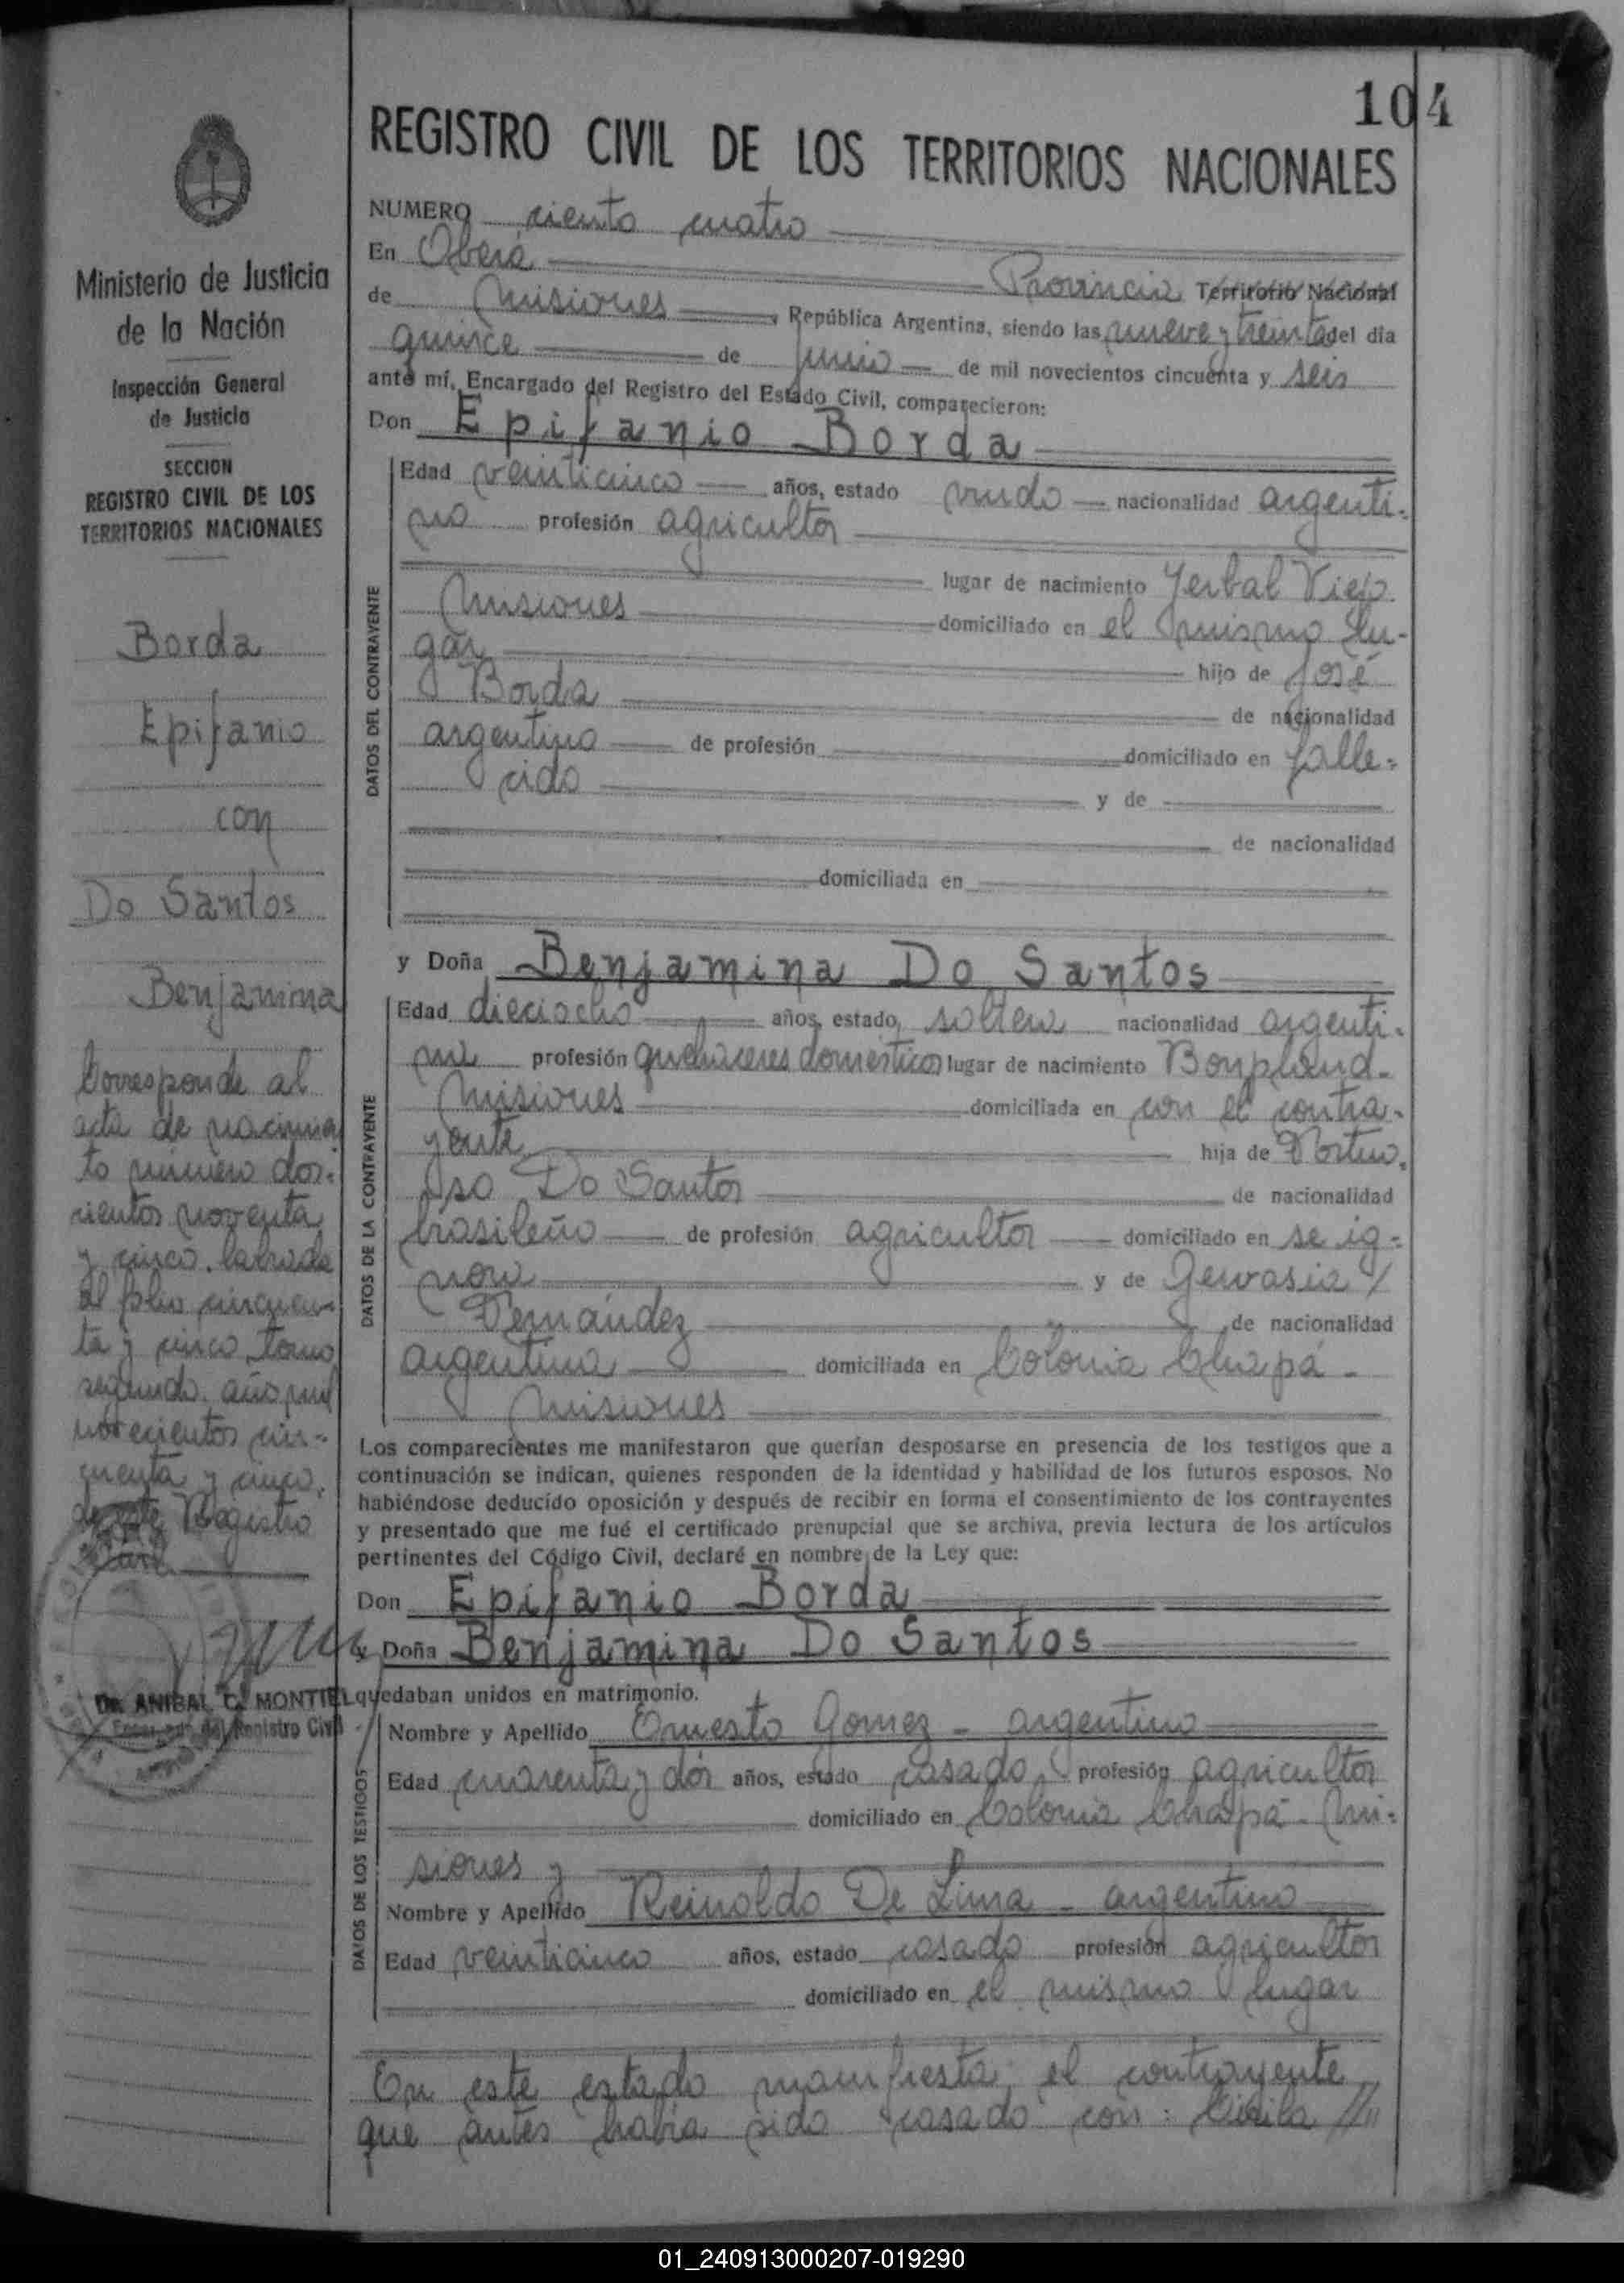 104
REGISTRO CIVIL DE LOS TERRITORIOS NACIONALES
NUMERO ciento cuatro
En Oberá Provincia Territorio Nacional
de Misiones República Argentina, siendo las nueve y treinta del día
quince de junio de mil novecientos cincuenta y seis
ante mí, Encargado del Registro del Estado Civil, comparecieron:
Don Epifanio Borda
DATOS DEL CONTRAYENTE
Edad veinticinco años, estado viudo nacionalidad argenti-
no profesión agricultor
lugar de nacimiento Yerbal Viejo
Misiones domiciliado en el mismo lu-
gar hijo de José
Borda de nacionalidad
argentino de profesión domiciliado en falle-
cido y de
de nacionalidad
domiciliada en
y Doña Benjamina Do Santos
DATOS DE LA CONTRAYENTE
Edad dieciocho años, estado, soltera nacionalidad argenti-
na profesión quehaceres domésticos lugar de nacimiento Bonpland-
Misiones domiciliada en con el contra-
yente hija de
Do Santos de nacionalidad
brasileño de profesión agricultor domiciliado en se ig-
nora y de Gervasia /
Fernández de nacionalidad
argentina domiciliada en Colonia Chapá -
Misiones
Los comparecientes me manifestaron que querían desposarse en presencia de los testigos que a
continuación se indican, quienes responden de la identidad y habilidad de los futuros esposos. No
habiéndose deducido oposición y después de recibir en forma el consentimiento de los contrayentes
y presentado que me fué el certificado prenupcial que se archiva, previa lectura de los artículos
pertinentes del Código Civil, declaré en nombre de la Ley que:
Don Epifanio Borda
y Doña Benjamina Do Santos
quedaban unidos en matrimonio.
DATOS DE LOS TESTIGOS
Nombre y Apellido Ernesto Gomez - argentino
Edad cuarenta y dos años, estado casado profesión agricultor
domiciliado en Colonia Chapá - Mi-
siones y
Nombre y Apellido Reinoldo De Lima - argentino
Edad veinticinco años, estado casado profesión agricultor
domiciliado en el mismo lugar
En este estado manifiesta el contrayente
que antes había sido casado con: Cirila //"
Ministerio de Justicia
de la Nación
Inspección General
de Justicia
SECCION
REGISTRO CIVIL DE LOS
TERRITORIOS NACIONALES
Borda
Epifanio
con
Do Santos
Benjamina
Corresponde al
acta de nacimien
to número dos-
cientos noventa
y cinco, labrada
al folio cincuen-
ta y cinco, tomo
segundo, año mil
novecientos cin-
cuenta y cinco,
de este Registro
Dr. ANIBAL C. MONTIEL
Encargado del Registro Civil
01_240913000207-019290